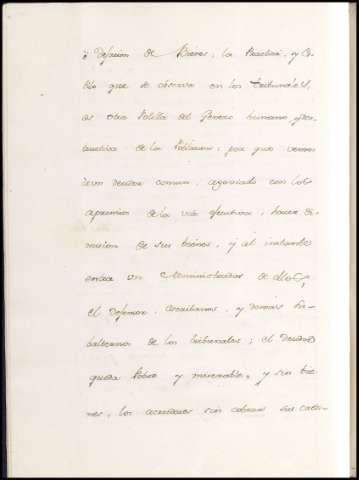 ò Desercion de Bienes, la Practica, y Es-
tilo que se observa en los Tribunales,
es otra Polilla del Genero humano, y des-
tructiva de la Poblacion; por que vemos
un deudor comun, agoviado con los
apremios de la via executiva, hacer di-
mision de sus bienes, y al instante
entra un Administrador de ellos,
el Defensor, Escribanos, y demás su-
balternos de los tribunales; el Deudor
queda Pobre y miserable, y sin bie-
nes, los acreedores sin cobrar sus cred-